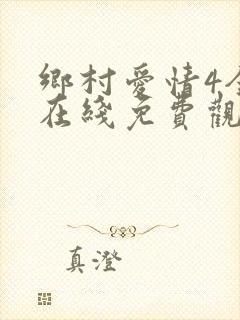 鄉村愛情4
在綫免費觀
真澄